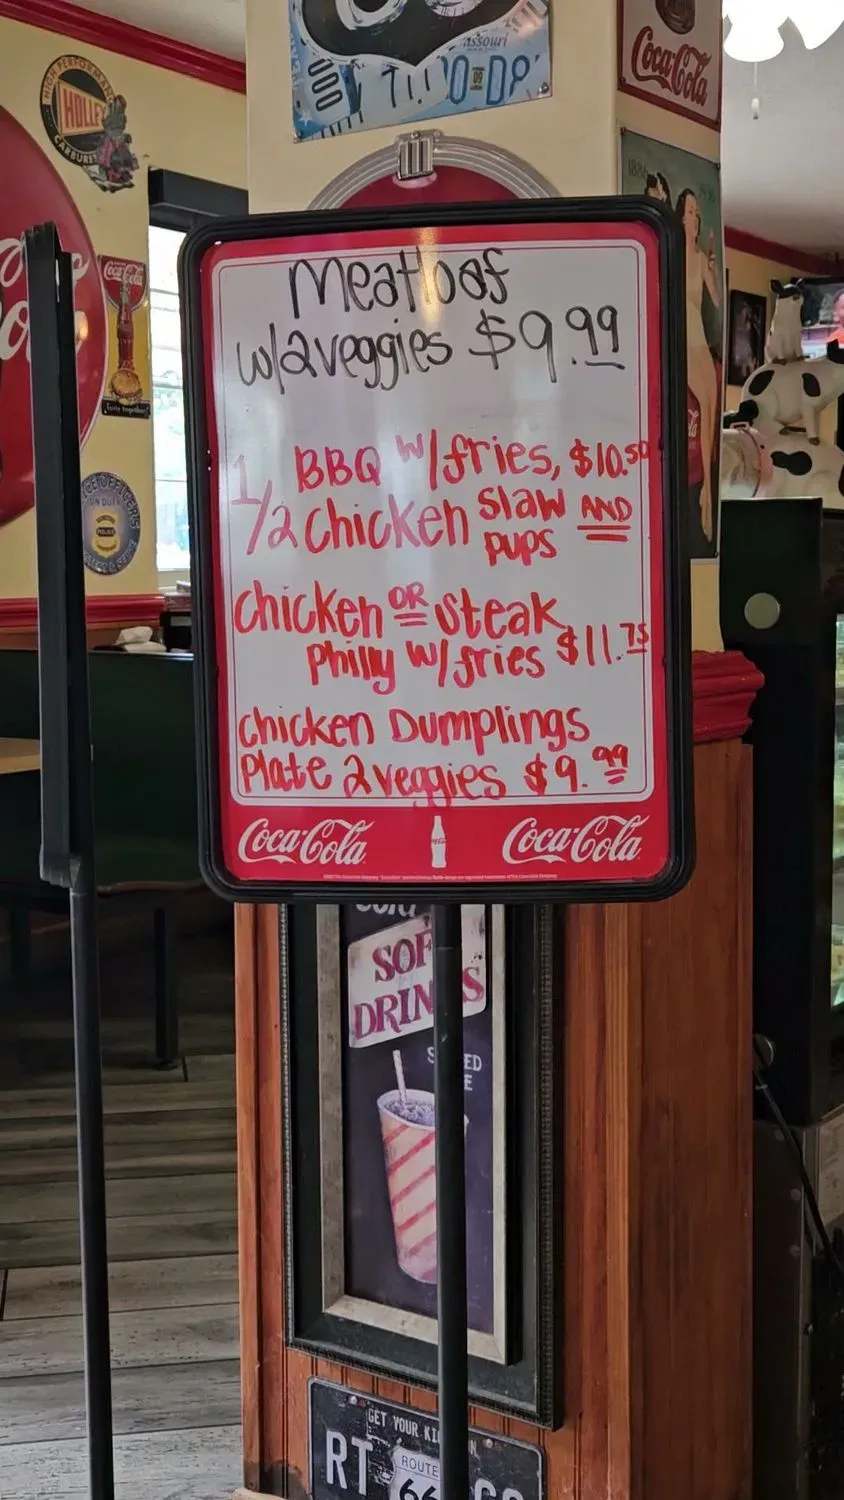 ssouri
09
Coca-Cola
HIGH PERFORMANCE
HOLLEY
CARBURET
1886
Coca-Cola
Meatloaf
w/2veggies $9.99
1/2 BBQ w/fries, $10.50
Chicken Slaw AND
pups
Chicken OR Steak
Philly w/fries $11.75
Chicken Dumplings
Plate 2veggies $9.99
Coca-Cola Coca-Cola
SOF
DRIN S
GET YOUR KI
RT
ROUTE
66